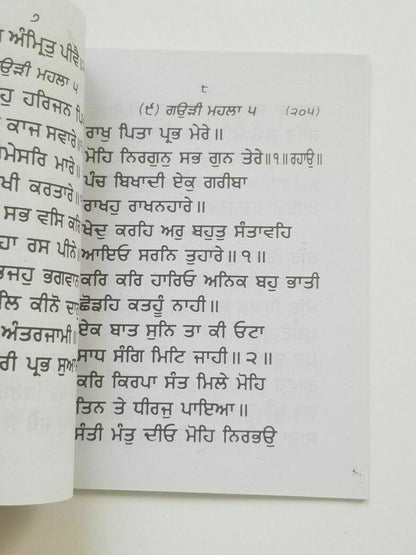 ੭
ਅੰਮ੍ਰਿਤੁ ਪੀਵੈ॥
ਗਉੜੀ ਮਹਲਾ ੫
ਹੁ ਹਰਿਜਨ ਪਿ
ਕਾਜ ਸਵਾਰੇ
ਮੇਸਰਿ ਮਾਰੇ
ਖੀ ਕਰਤਾਰੇ
ਸਭ ਵਸਿ ਕਰਿ
ਹਾ ਰਸ ਪੀਨੇ
ਭਜਹੁ ਭਗਵਾਨ
ਲਿ ਕੀਨੋ ਦਾ
ਅੰਤਰਜਾਮੀ॥
ਰੀ ਪ੍ਰਭ ਸੁਆ
੮
(੯) ਗਉੜੀ ਮਹਲਾ ੫ (੨੦੫)
ਰਾਖੁ ਪਿਤਾ ਪ੍ਰਭ ਮੇਰੇ॥
ਮੋਹਿ ਨਿਰਗੁਨੁ ਸਭ ਗੁਨ ਤੇਰੇ॥੧॥ਰਹਾਉ॥
ਪੰਚ ਬਿਖਾਦੀ ਏਕੁ ਗਰੀਬਾ
ਰਾਖਹੁ ਰਾਖਨਹਾਰੇ॥
ਖੇਦੁ ਕਰਹਿ ਅਰੁ ਬਹੁਤੁ ਸੰਤਾਵਹਿ
ਆਇਓ ਸਰਨਿ ਤੁਹਾਰੇ॥੧॥
ਕਰਿ ਕਰਿ ਹਾਰਿਓ ਅਨਿਕ ਬਹੁ ਭਾਤੀ
ਛੋਡਹਿ ਕਤਹੂੰ ਨਾਹੀ॥
ਏਕ ਬਾਤ ਸੁਨਿ ਤਾ ਕੀ ਓਟਾ
ਸਾਧ ਸੰਗਿ ਮਿਟਿ ਜਾਹੀ॥੨॥
ਕਰਿ ਕਿਰਪਾ ਸੰਤ ਮਿਲੇ ਮੋਹਿ
ਤਿਨ ਤੇ ਧੀਰਜੁ ਪਾਇਆ॥
ਸੰਤੀ ਮੰਤੁ ਦੀਓ ਮੋਹਿ ਨਿਰਭਉ